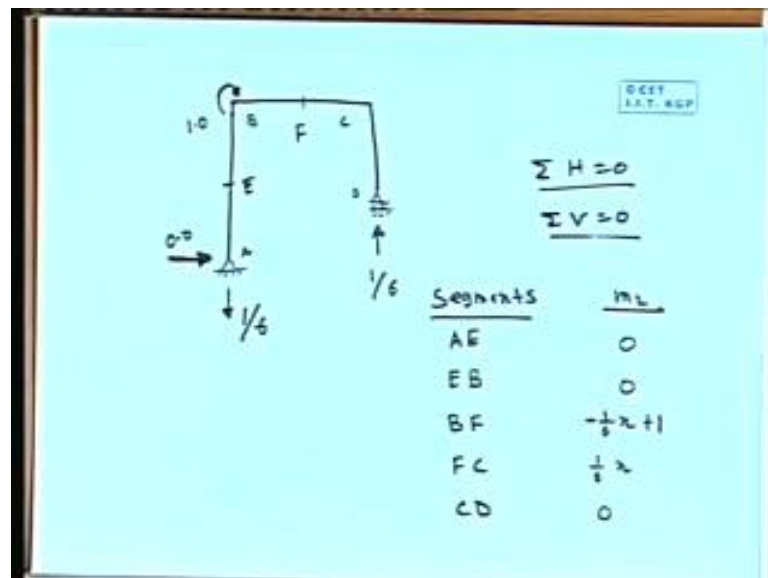 O CET
I.I.T. KGP
1.0
B
F
C
E
D
0.0
A
1/6
1/6
Σ H = 0
Σ V = 0
Segments m₂
AE 0
EB 0
BF -1/6 x + 1
FC 1/6 x
CD 0